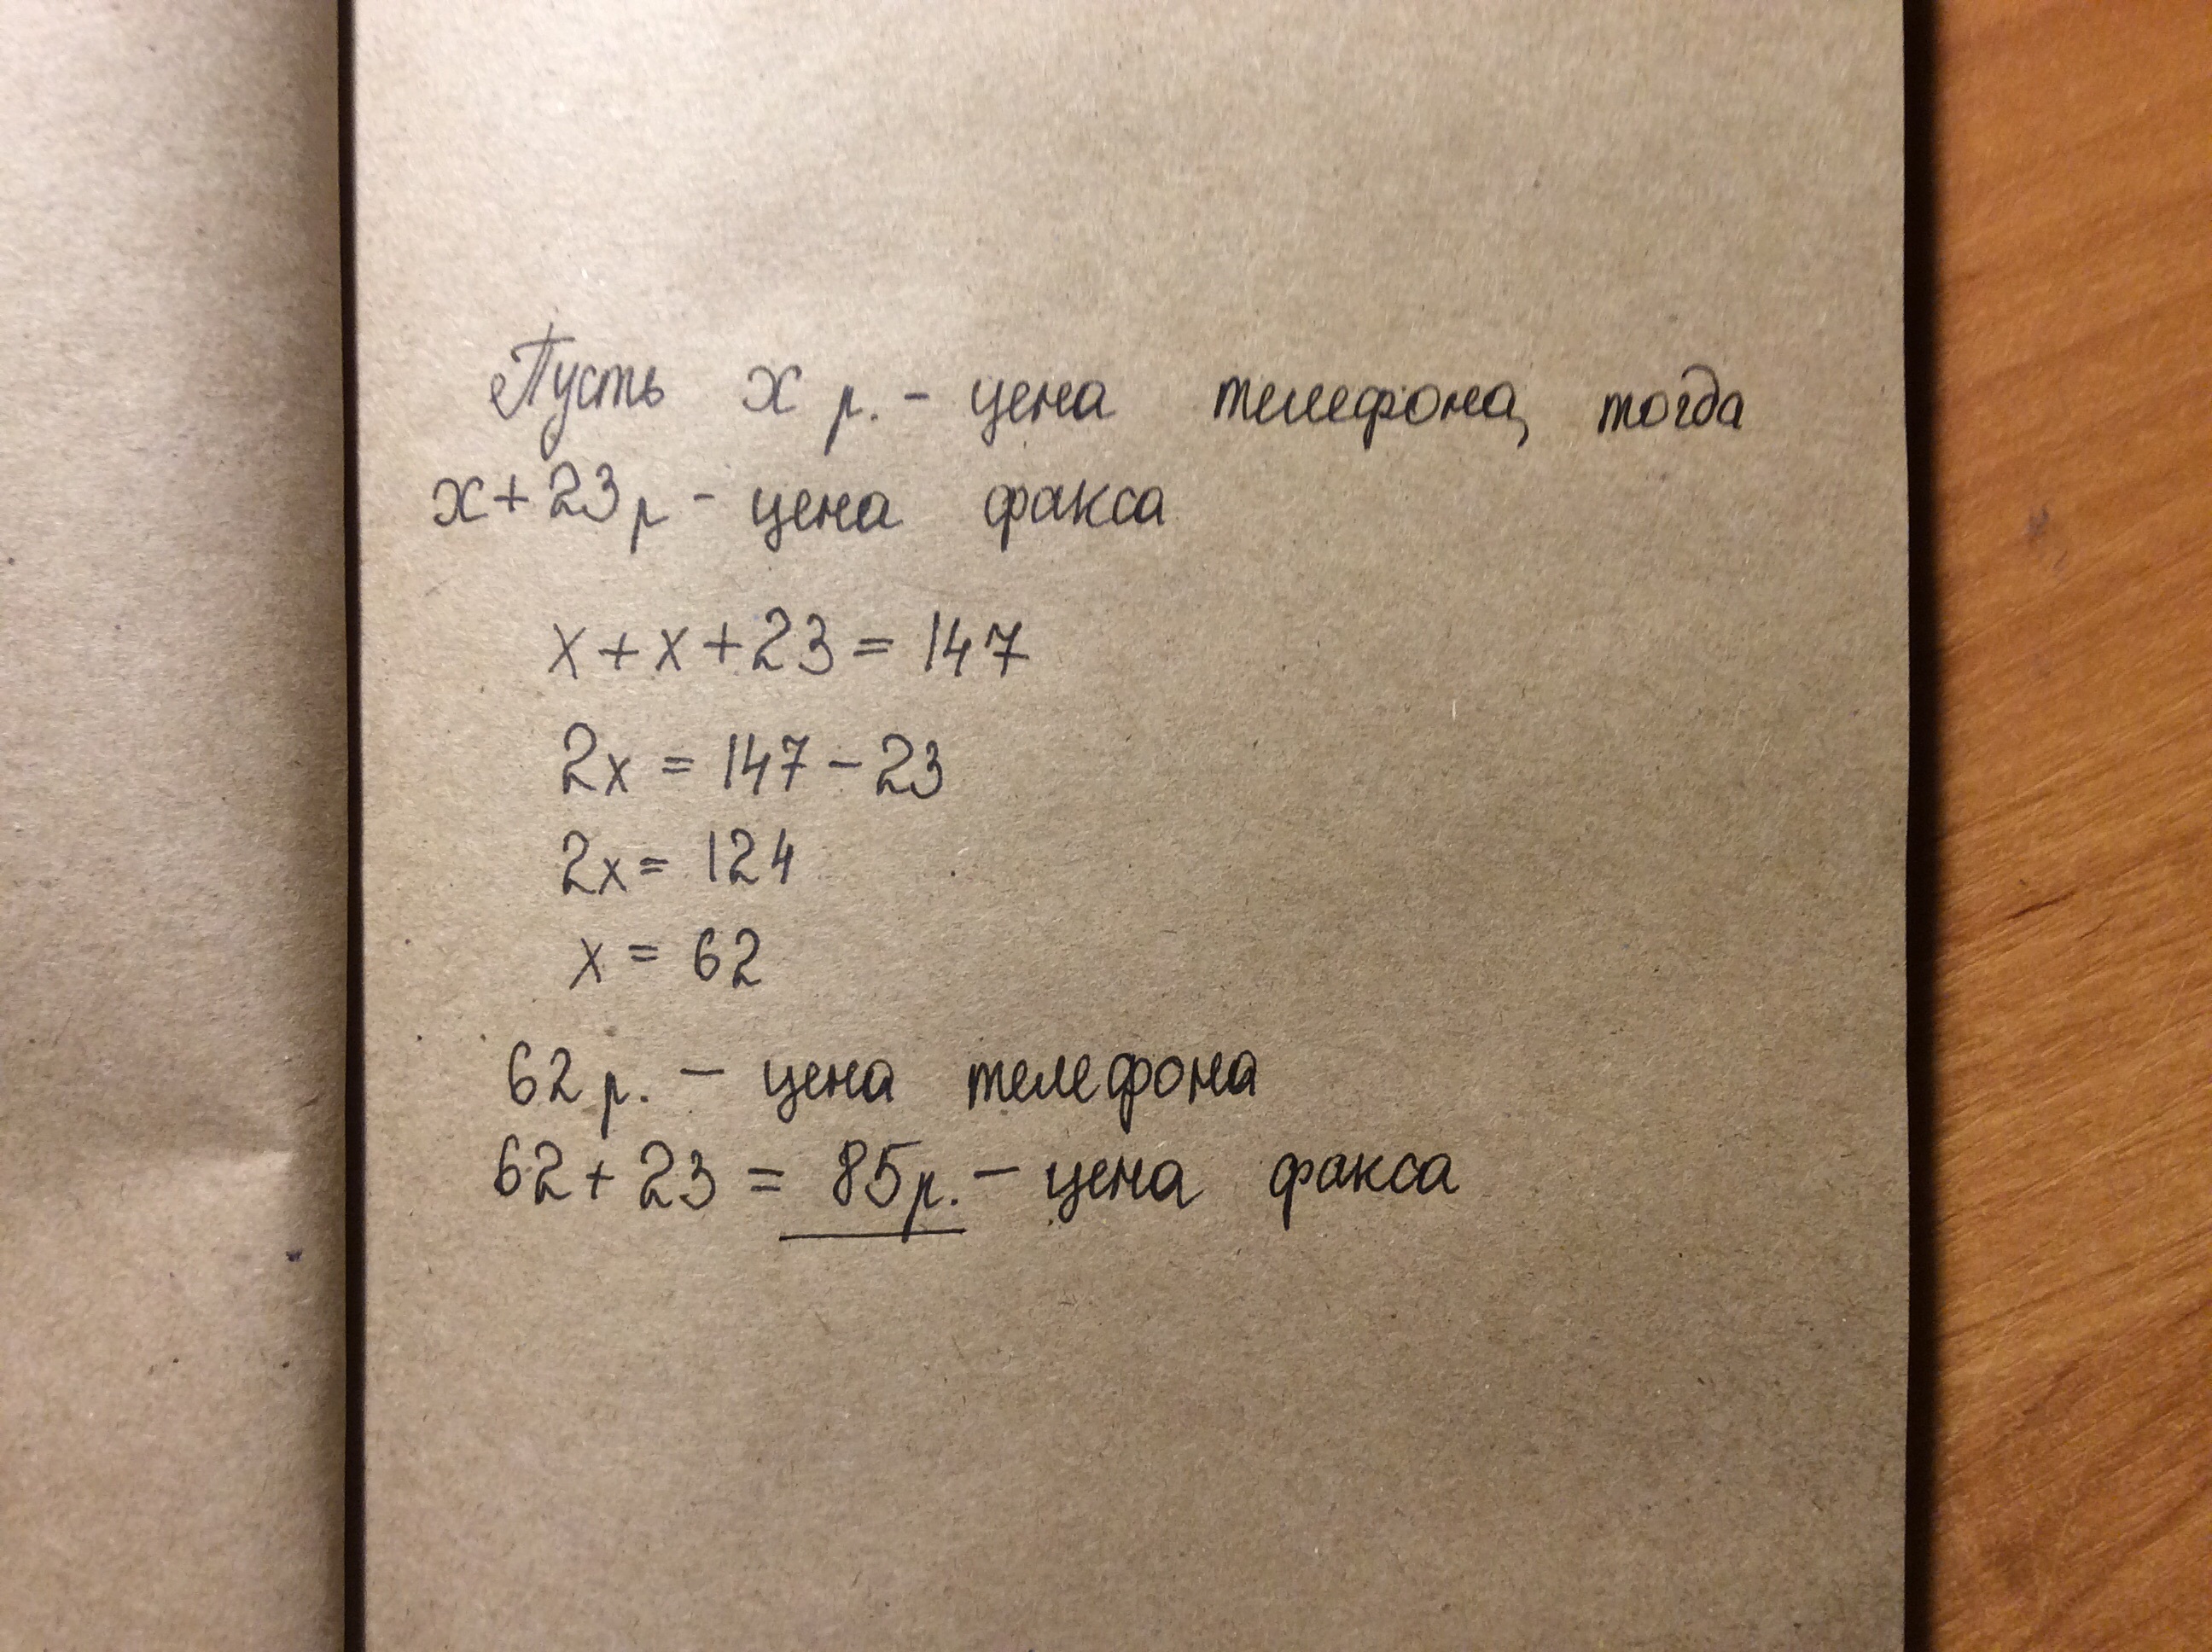 Пусть x р. - цена телефона, тогда
x+23р - цена факса
x+x+23 = 147
2x = 147-23
2x = 124
x = 62
62р. - цена телефона
62+23 = 85р. - цена факса